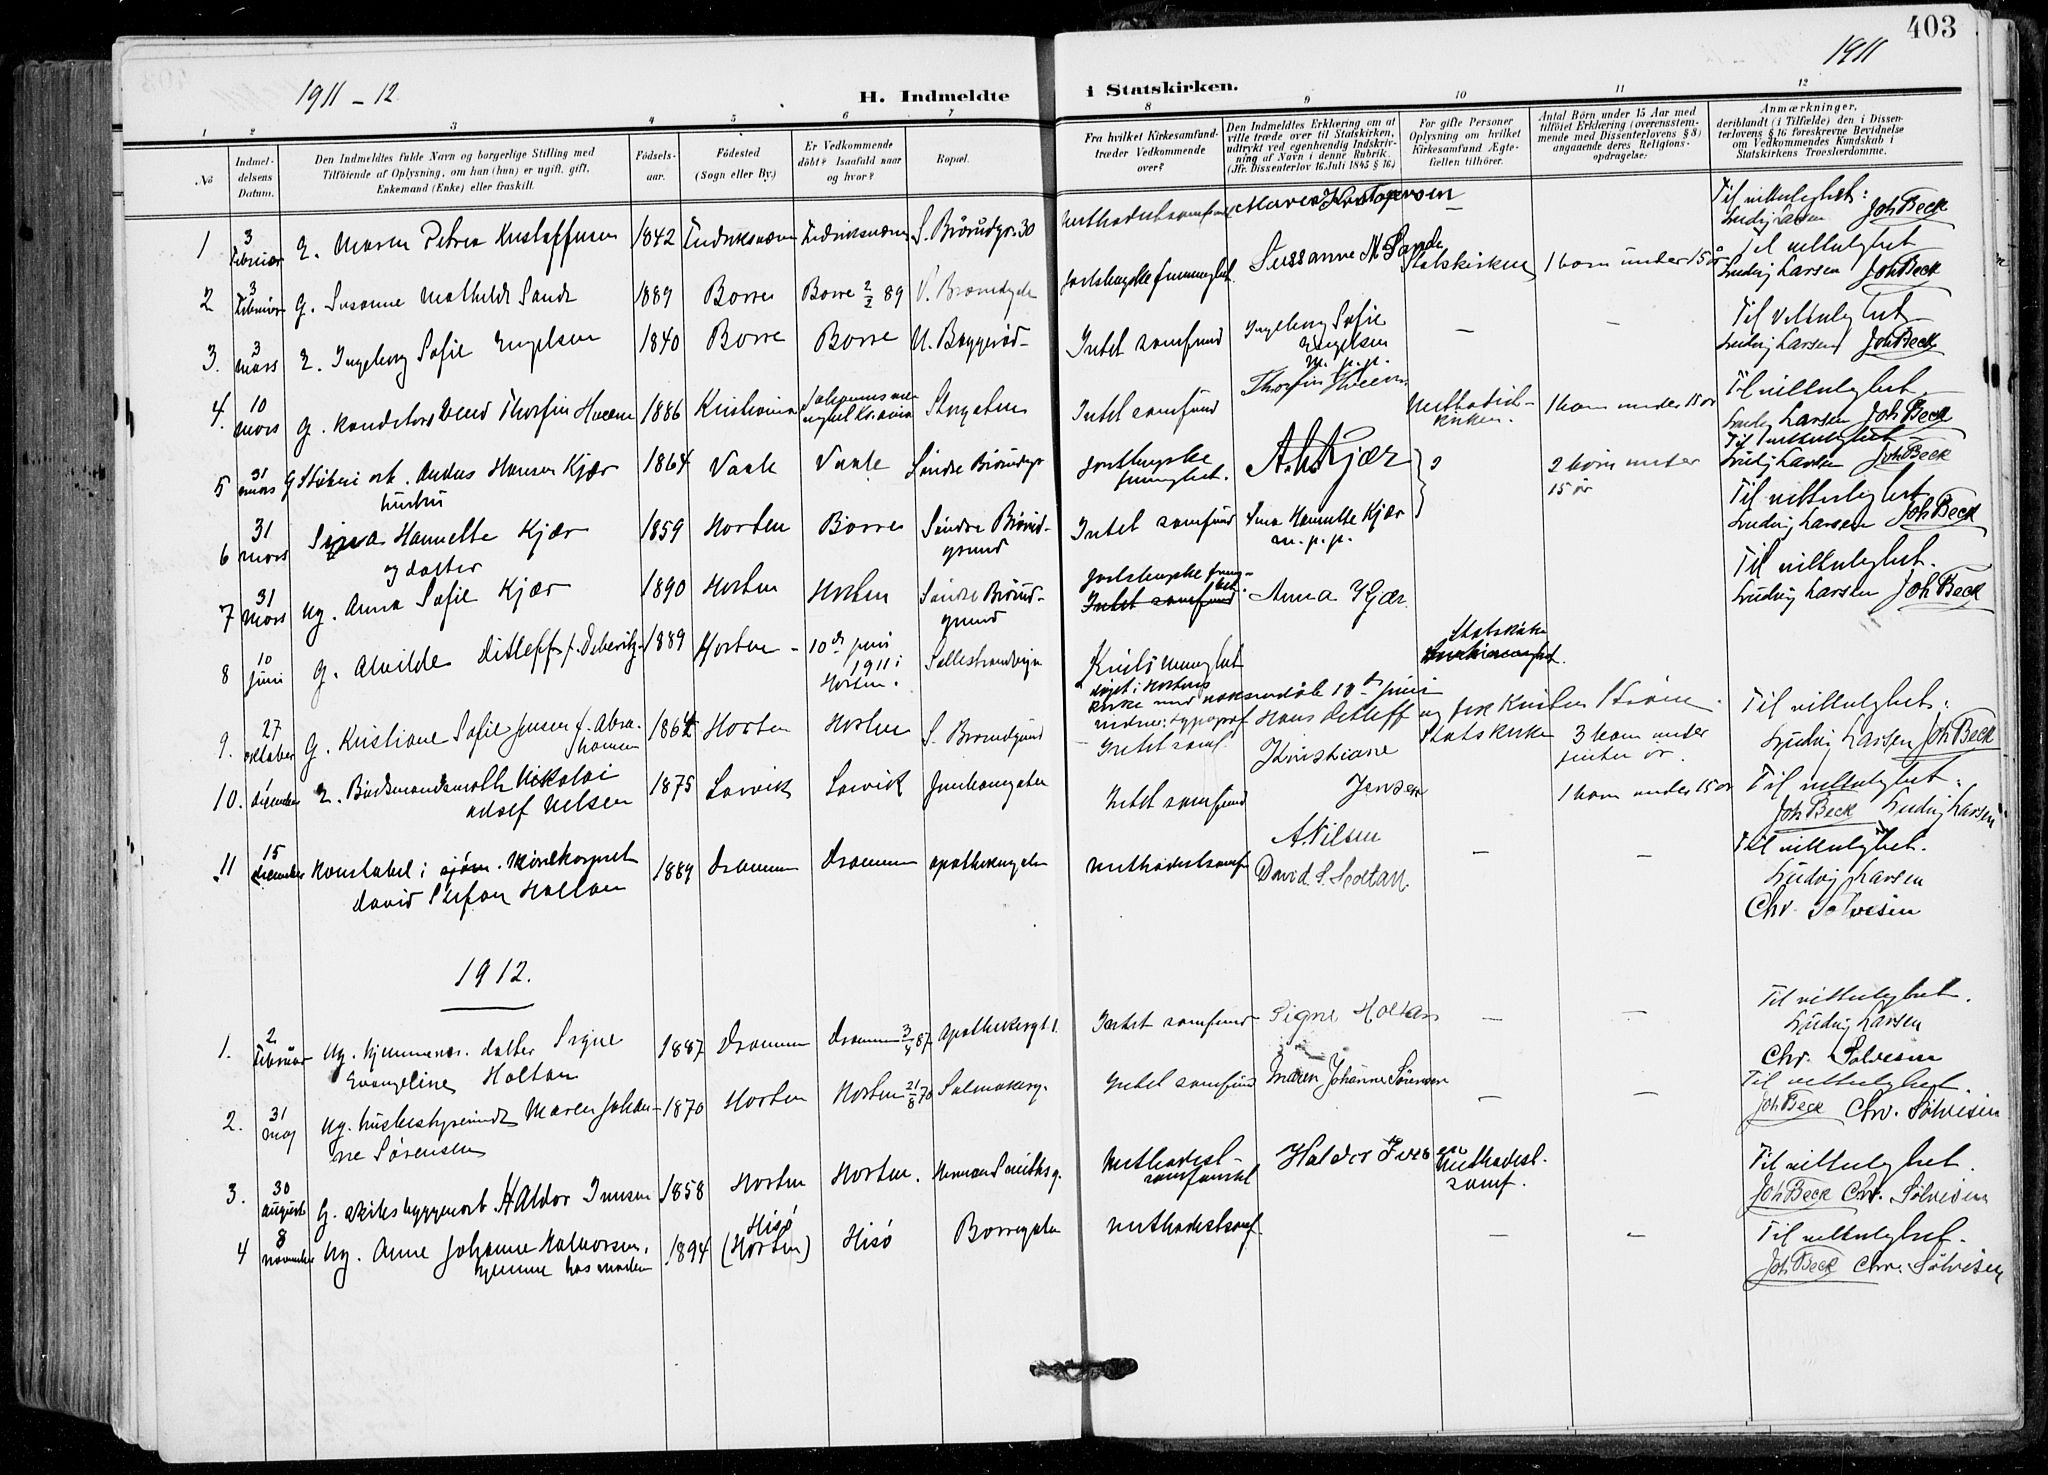 403
1911 – 12
1911
H. Indmeldte i Statskirken.
1 2 3 4 5 6 7 8 9 10 11 12
No
Indmel-
delsens
Datum.
Den Indmeldtes fulde Navn og borgerlige Stilling med
Tilföiende af Oplysning, om han (hun) er ugift, gift,
Enkemand (Enke) eller fraskilt.
Födsels-
aar.
Födested
(Sogn eller By.)
Er Vedkommende
döbt? Isaafald naar
og hvor?
Bopæl.
Fra hvilket Kirkesamfund
træder Vedkommende
over?
Den Indmeldtes Erklæring om at
ville træde over til Statskirken,
udtrykt ved egenhændig Indskriv-
ning af Navn i denne Rubrik.
(Jfr. Dissenterlov 16. Juli 1845 § 16.)
For gifte Personer
Oplysning om hvilket
Kirkesamfund Ægte-
fællen tilhörer.
Antal Börn under 15 Aar med
tilföiet Erklæring (overensstem-
mende med Dissenterlovens § 8)
angaaende deres Religions-
opdragelse.
Anmærkninger,
deriblandt (i Tilfælde) den i Dissen-
terlovens § 16 foreskrevne Bevidnelse
om Vedkommendes Kundskab i
Statskirkens Troeslærdomme.
1 3 Februar E. Maren Petrea Kristoffersen 1842 Fredriksværn Fredriksværn S. Brårudgr. 30 Methodistsamfund Maren Kristofersen – Til vitterlighet: Ludvig Larsen Joh Beck
2 3 Februar G. Susanne Mathilde Sande 1889 Borre Borre 2/2 89 Susanne M Sande Statskirken 1 barn under 15 år Til vitterlighet Ludvig Larsen Joh Beck
3. 3 mars E. Ingeborg Sofie Engelsen 1840 Borre Borre N. Baggerød – Intet samfund Ingeborg Sofie Engelsen m. p. p. – – Til vitterlighet Ludvig Larsen Joh Beck
4. 10 mars G. Thorfin 1886 Kristiania Storgaten Intet samfund Thorfin Methodist-kirken. 1 barn under 15 år Til vitterlighet Ludvig Larsen Joh Beck
5 31 mars G Støberiarb. Anders Hansen Kjær 1864 Vaale Vaale Søndre Brårudgr A. H. Kjær 2 barn under 15 år Til vitterlighet Ludvig Larsen Joh Beck
6 31 mars hustru Sina Hannette Kjær 1859 Horten Borre Søndre Brårud-grund Intet samfund Sina Hannette Kjær m. p. p. Til vitterlighet Ludvig Larsen Joh Beck
7 31 mars og datter ug. Anna Sofie Kjær 1890 Horten Horten Søndre Brårud-grund Intet samfund Anna Kjær. Til vitterlighet. Ludvig Larsen Joh Beck
8 10 juni G. Alvilde Ditleff f. 1889 Horten – 10de juni 1911 i Horten. Statskirke
døpt i Hortens kirke 10de juni
Hans Ditleff og
9. 27 oktober G. Kristiane Sofie Jensen f. Abra-hamsen 1864 Horten Horten S. Brårudgrund Intet samf. Kristiane Jensen Statskirken 3 barn under femten år. Til vitterlighet: Ludvig Larsen Joh Beck
10. desember E. Nikolai Adolf Nilsen 1875 Larvik Larvik Intet samfund A. Nilsen 1 barn under 15 år Til vitterlighet: Joh Beck Ludvig Larsen
11 15 desember Konstabel i sjøm. Minekorpset David Stefan Holtan 1889 Drammen Drammen Apothekergaten Methodistsamf. David. S. Holtan. – – Til vitterlighet. Ludvig Larsen Chr. Sølvesen
1912.
1. 2 Februar ug. hjemmevær. datter Signe Evangeline Holtan 1887 Drammen Drammen 3/4 87 Apothekergt. 1. Intet samfund Signe Holtan – – Til vitterlighet. Ludvig Larsen Chr. Sølvesen
2. 31 maj ug. husbestyrerinde Maren Johan-ne Sørensen 1870 Horten Horten 21/8 70 Salmakerg. Intet samfund Maren Johanne Sørensen – – Til vitterlighet. Joh Beck Chr. Sølvesen
3. 30 august G. skibsbyggerarb. Haldor Iversen 1858 Horten Horten. Herman Smithsg. Methodist-samfundet Haldor Iversen Methodist. samf. Til vitterlighet. Joh Beck Chr. Sølvesen
4 8 november ug. Anne Johanne Halvorsen, hjemme hos moderen 1894 Hisö (Horten) Hisö Borregaten Methodistsamf – – Til vitterlighet. Joh Beck Chr. Sølvesen